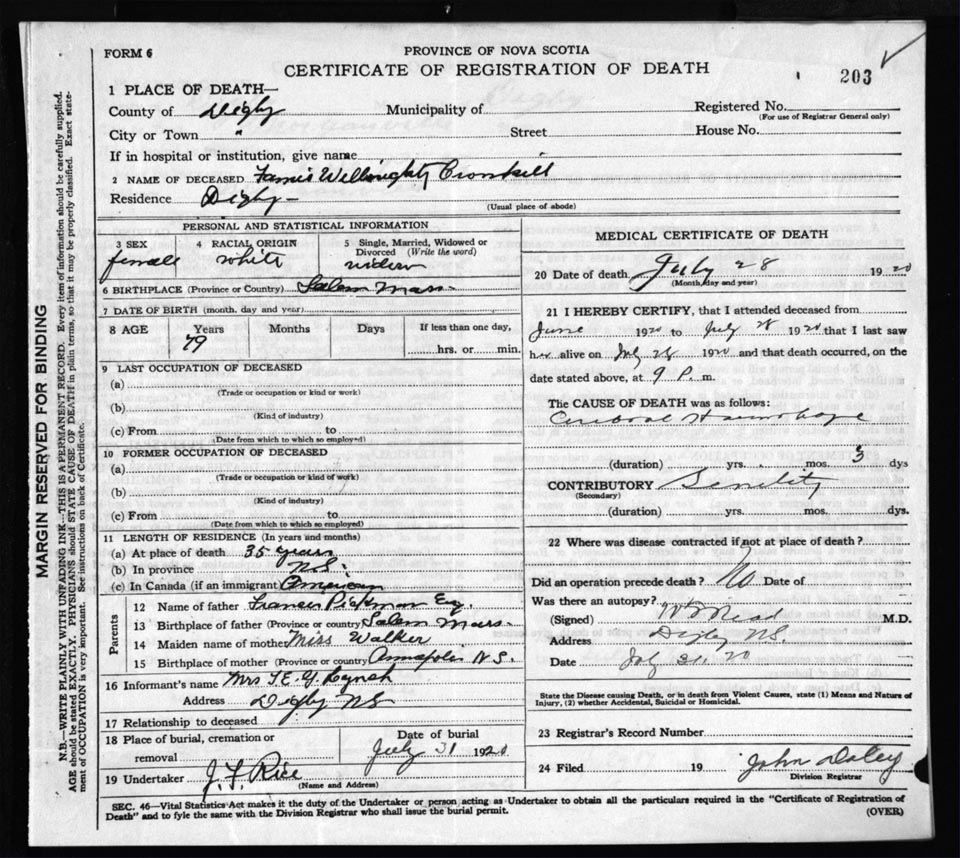 FORM 6
PROVINCE OF NOVA SCOTIA
CERTIFICATE OF REGISTRATION OF DEATH
203
1 PLACE OF DEATH—
County of Digby Municipality of Registered No.
(For use of Registrar General only)
City or Town " Street House No.
If in hospital or institution, give name
2 NAME OF DECEASED Willoughby
Residence Digby—
(Usual place of abode)
PERSONAL AND STATISTICAL INFORMATION
3 SEX 4 RACIAL ORIGIN 5 Single, Married, Widowed or Divorced (Write the word)
female white widow
6 BIRTHPLACE (Province or Country) Salem Mass
7 DATE OF BIRTH (month, day and year)
8 AGE Years Months Days If less than one day,
79 hrs. or min.
9 LAST OCCUPATION OF DECEASED
(a)
(Trade or occupation or kind or work)
(b)
(Kind of industry)
(c) From to
(Date from which to which so employed)
10 FORMER OCCUPATION OF DECEASED
(a)
(Trade or occupation or kind of work)
(b)
(Kind of industry)
(c) From to
(Date from which to which so employed)
11 LENGTH OF RESIDENCE (In years and months)
(a) At place of death 35 years
(b) In province N.S.
(c) In Canada (if an immigrant) American
Parents
12 Name of father Francis Pickman Esq.
13 Birthplace of father (Province or country) Salem Mass
14 Maiden name of mother Miss Walker
15 Birthplace of mother (Province or country) Annapolis N.S.
16 Informant's name Mrs
Address Digby NS
17 Relationship to deceased
18 Place of burial, cremation or removal Date of burial
July 31 1920
19 Undertaker J. F. Rice
(Name and Address)
MEDICAL CERTIFICATE OF DEATH
20 Date of death July 28 1920
(Month, day and year)
21 I HEREBY CERTIFY, that I attended deceased from
June 1920 to July 28 1920 that I last saw
her alive on July 28 1920 and that death occurred, on the
date stated above, at 9 P. m.
The CAUSE OF DEATH was as follows:
Cerebral Haemorhage
(duration) yrs. mos. 3 dys
CONTRIBUTORY Senility
(Secondary)
(duration) yrs. mos. dys.
22 Where was disease contracted if not at place of death? ?
Did an operation precede death? No Date of
Was there an autopsy?
(Signed) M.D.
Address Digby N.S.
Date July 31. 20
State the Disease causing Death, or in death from Violent Causes, state (1) Means and Nature of
Injury, (2) whether Accidental, Suicidal or Homicidal.
23 Registrar's Record Number
24 Filed 19 John Daley
Division Registrar
SEC. 46—Vital Statistics Act makes it the duty of the Undertaker or person acting as Undertaker to obtain all the particulars required in the "Certificate of Registration of
Death" and to fyle the same with the Division Registrar who shall issue the burial permit.
(OVER)
MARGIN RESERVED FOR BINDING
N.B.—WRITE PLAINLY WITH UNFADING INK—THIS IS A PERMANENT RECORD. Every item of information should be carefully supplied.
AGE should be stated EXACTLY. PHYSICIANS should STATE CAUSE OF DEATH in plain terms, so that it may be properly classified. Exact statement of OCCUPATION is very important. See instructions on back of Certificate.